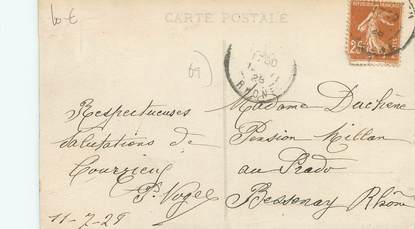 10 €
CARTE POSTALE
69
REPUBLIQUE FRANCAISE
25
RHONE
Respectueuses
salutations de
Courzieu
P. Vogel
11-7-28
Madame Duchêne
Pension Millan
au Prado
Bessenay Rhône